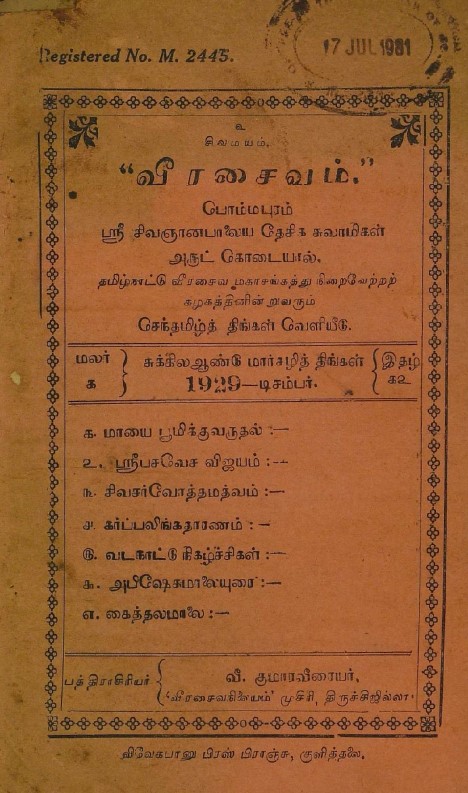 Registered No. M. 2445.
17 JUL 1981
உ
சிவமயம்.
“வீரசைவம்.”
பொம்மபுரம்
ஸ்ரீ சிவஞானபாலைய தேசிக சுவாமிகள்
அருட் கொடையால்.
தமிழ்நாட்டு வீரசைவ மகாசங்கத்து நிறைவேற்றற்
கழகத்தினின்றுவரும்
செந்தமிழ்த் திங்கள் வெளியீடு.
மலர் க } சுக்கிலஆண்டு மார்சழித் திங்கள் { இதழ் கஉ
1929—டிசம்பர்.
க. மாயை பூமிக்குவருதல் :—
உ. ஸ்ரீபசவேச விஜயம் :—
ந. சிவசர்வோத்தமத்வம் :—
ச. கர்ப்பலிங்கதாரணம் : –
ரு. வடநாட்டு நிகழ்ச்சிகள் :—
சு. அபிஷேகமாலையுரை :—
எ. கைத்தலமாலை :—
பத்திராசிரியர் { வீ. குமாரவீரையர்,
‘வீரசைவநிலையம்’ முசிரி, திருச்சிஜில்லா.
விவேகபானு பிரஸ் பிராஞ்சு, குளித்தலை.